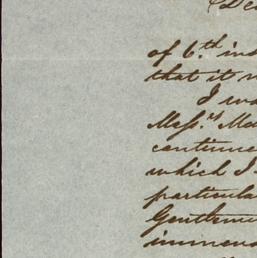 (Dea
of 6.th ins
that it w
I wa
Mess.rs Ma
continue
which I
particula
Gentlem
immens